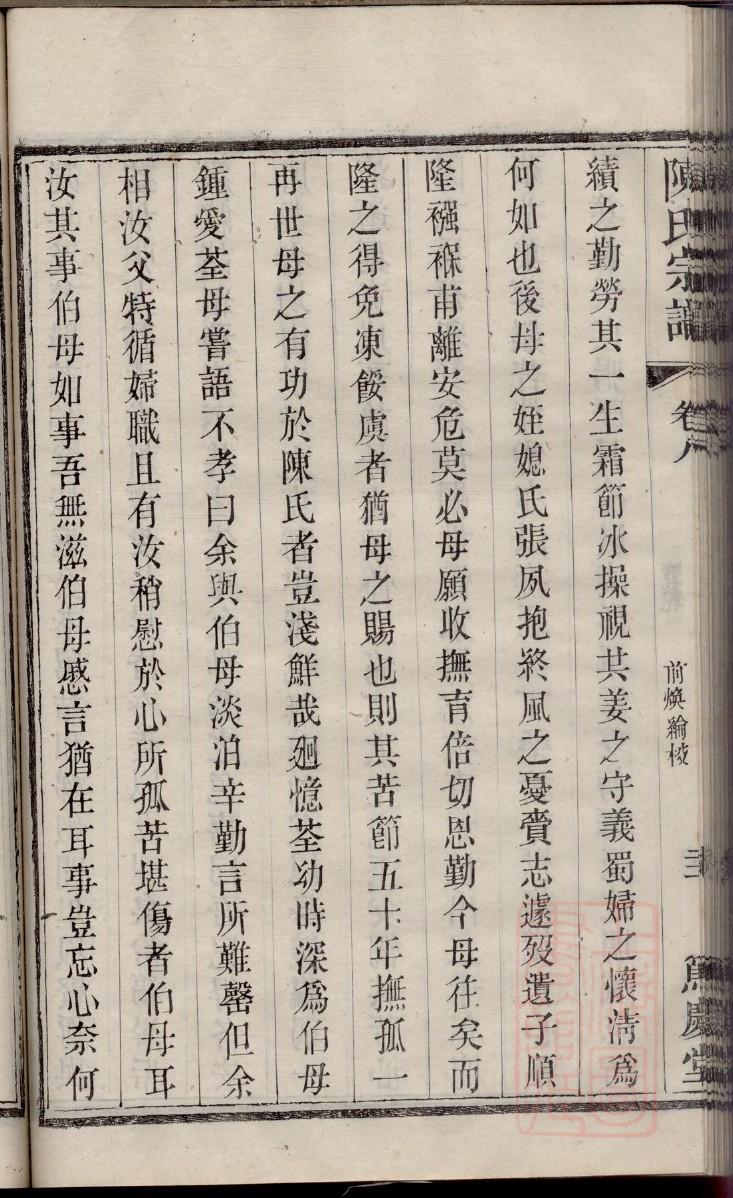 陳氏宗譜 卷八 前煥綸校 篤慶堂
績之勤勞其一生霜節冰操視共姜之守義蜀婦之懷清為
何如也後母之姪媳氏張夙抱終風之憂賫志遽歿遺子順
隆襁褓甫離安危莫必母願收撫育倍切恩勤今母往矣而
隆之得免凍餒虞者猶母之賜也則其苦節五十年撫孤一
再世母之有功於陳氏者豈淺鮮哉廻憶荃幼時深為伯母
鍾愛荃母嘗語不孝曰余與伯母淡泊辛勤言所難罄但余
相汝父特循婦職且有汝稍慰於心所孤苦堪傷者伯母耳
汝其事伯母如事吾無滋伯母慼言猶在耳事豈忘心奈何